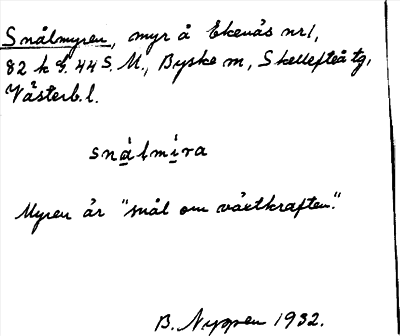 Snålmyren, myr å Ekenäs nr 1,
82 k f. 44 S. M., Byske m, Skellefteå tg,
Västerb. l.
snålmira
Myren är "snål om växtkraften."
B. Nygren 1932.